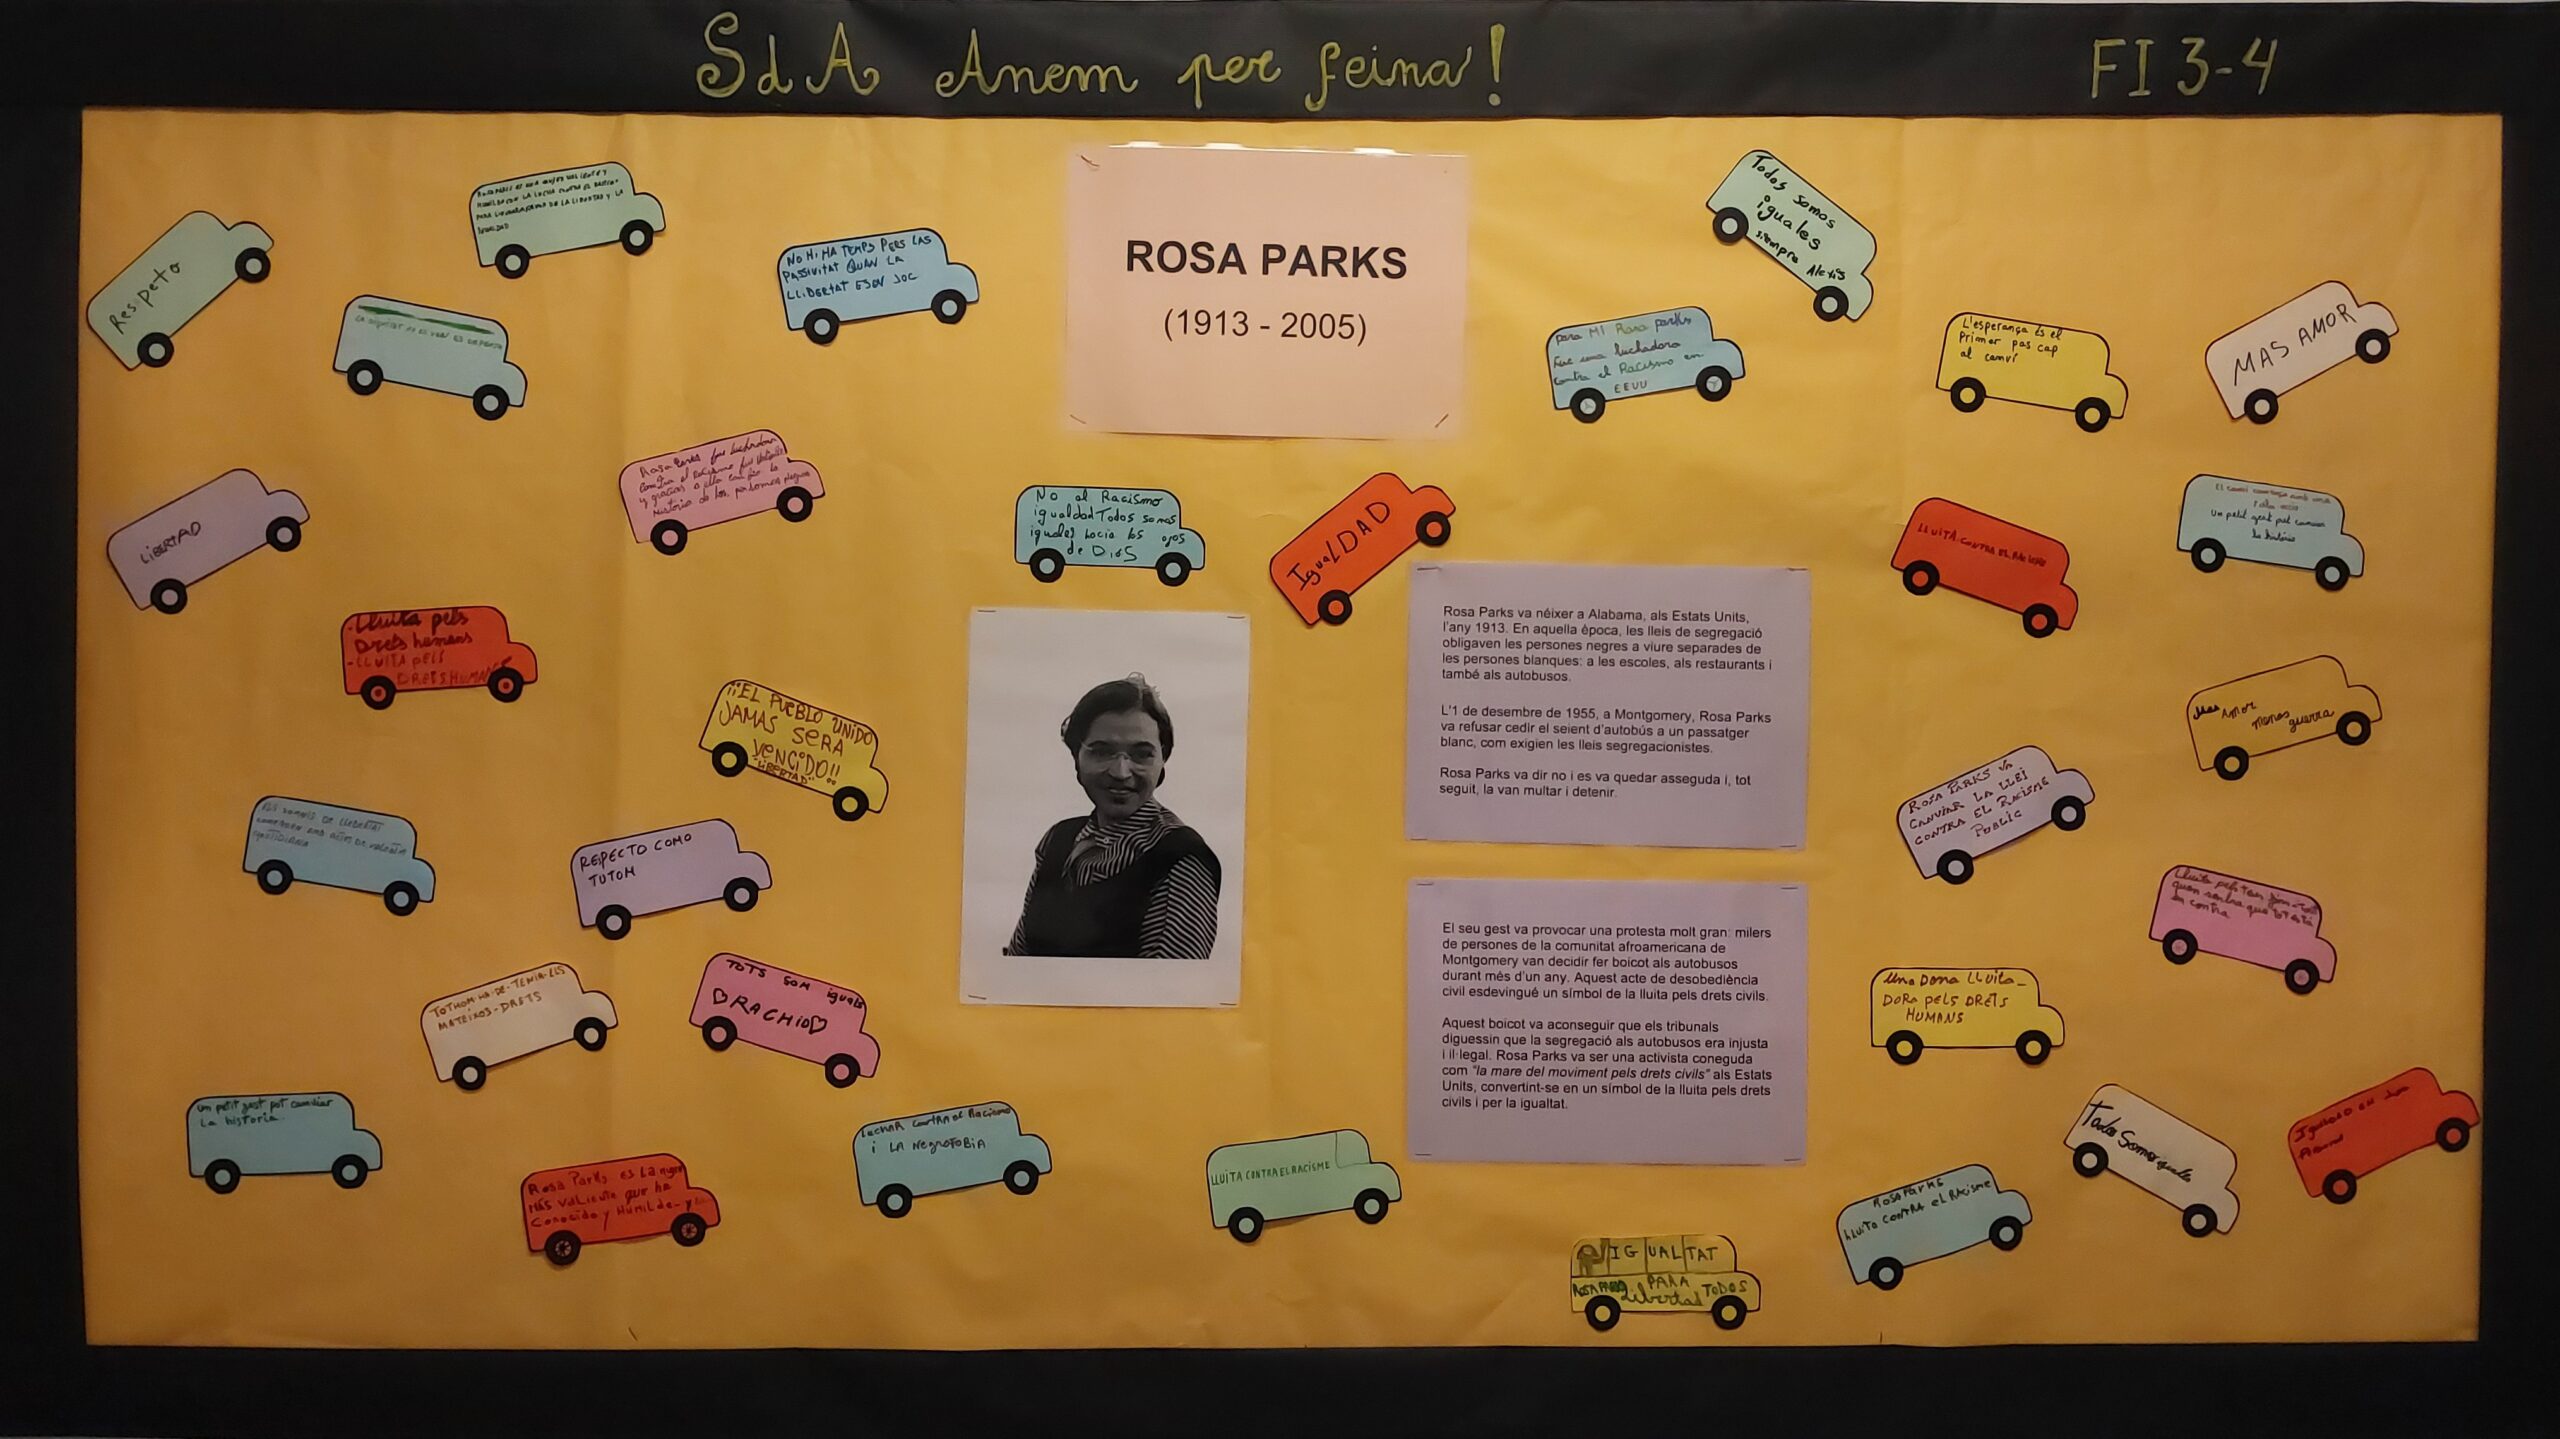 SdA Anem per feina!
FI 3-4
ROSA PARKS
(1913 - 2005)
Respeto
NO HI HA TEMPS PERS LAS
PASSIVITAT QUAN LA
LLIBERTAT ESEN JOC
Todos somos
iguales
siempre Alexis
para MI Rosa parks
Fue una luchadora
contra el Racismo en
EEUU
L'esperança és el
Primer pas cap
al canvi
MAS AMOR
LIBERTAD
Rosa Parks fue luchadora
contra el racismo fue valiente
y gracias a ella cambio la
historia de las personas negras
No al Racismo
igualdad Todos somos
iguales hacia los ojos
de DioS
IguaLDAD
LLUITA CONTRA EL RACISME
Un petit gest pot canviar
la història
-Lluita pels
Drets humans
-LLUITA PELS
DRETS HUMANS
¡¡EL PUEBLO UNIDO
JAMAS SERA
VENCIDO!!
"LIBERTAD"
Rosa Parks va néixer a Alabama, als Estats Units,
l'any 1913. En aquella època, les lleis de segregació
obligaven les persones negres a viure separades de
les persones blanques: a les escoles, als restaurants i
també als autobusos.
L'1 de desembre de 1955, a Montgomery, Rosa Parks
va refusar cedir el seient d'autobús a un passatger
blanc, com exigien les lleis segregacionistes.
Rosa Parks va dir no i es va quedar asseguda i, tot
seguit, la van multar i detenir.
Mas Amor
menos guerra
ROSA PARKS VA
CANVIAR LA LLEI
CONTRA EL RACISME
PUBLIC
ELS SOMNIS DE LLIBERTAT
COMENCEN AMB ACTES DE VALENTIA
QUOTIDIANA
RESPECTO COMO
TUTOM
El seu gest va provocar una protesta molt gran: milers
de persones de la comunitat afroamericana de
Montgomery van decidir fer boicot als autobusos
durant més d'un any. Aquest acte de desobediència
civil esdevingué un símbol de la lluita pels drets civils.
Aquest boicot va aconseguir que els tribunals
diguessin que la segregació als autobusos era injusta
i il·legal. Rosa Parks va ser una activista coneguda
com "la mare del moviment pels drets civils" als Estats
Units, convertint-se en un símbol de la lluita pels drets
civils i per la igualtat.
TOTHOM-HA-DE-TENIR-ELS
MATEIXOS-DRETS
TOTS SOM iguals
RACHID
Una Dona LLuita-
DORA pELS DRETS
HUMANS
un petit gest pot canviar
La historia.
Rosa Parks es La mujer
MÁS VALiente que he
Conocido y HUMILde-y
LuCHAR CONTRA el Racismo
i LA NegroFoBiA
LLUITA CONTRA EL RACISME
Todos Somos iguales
ROSA PARKS
LLUITA CONTRA el RACisme
IGUALTAT
PARA TODOS
ROSA PARKS Libertad